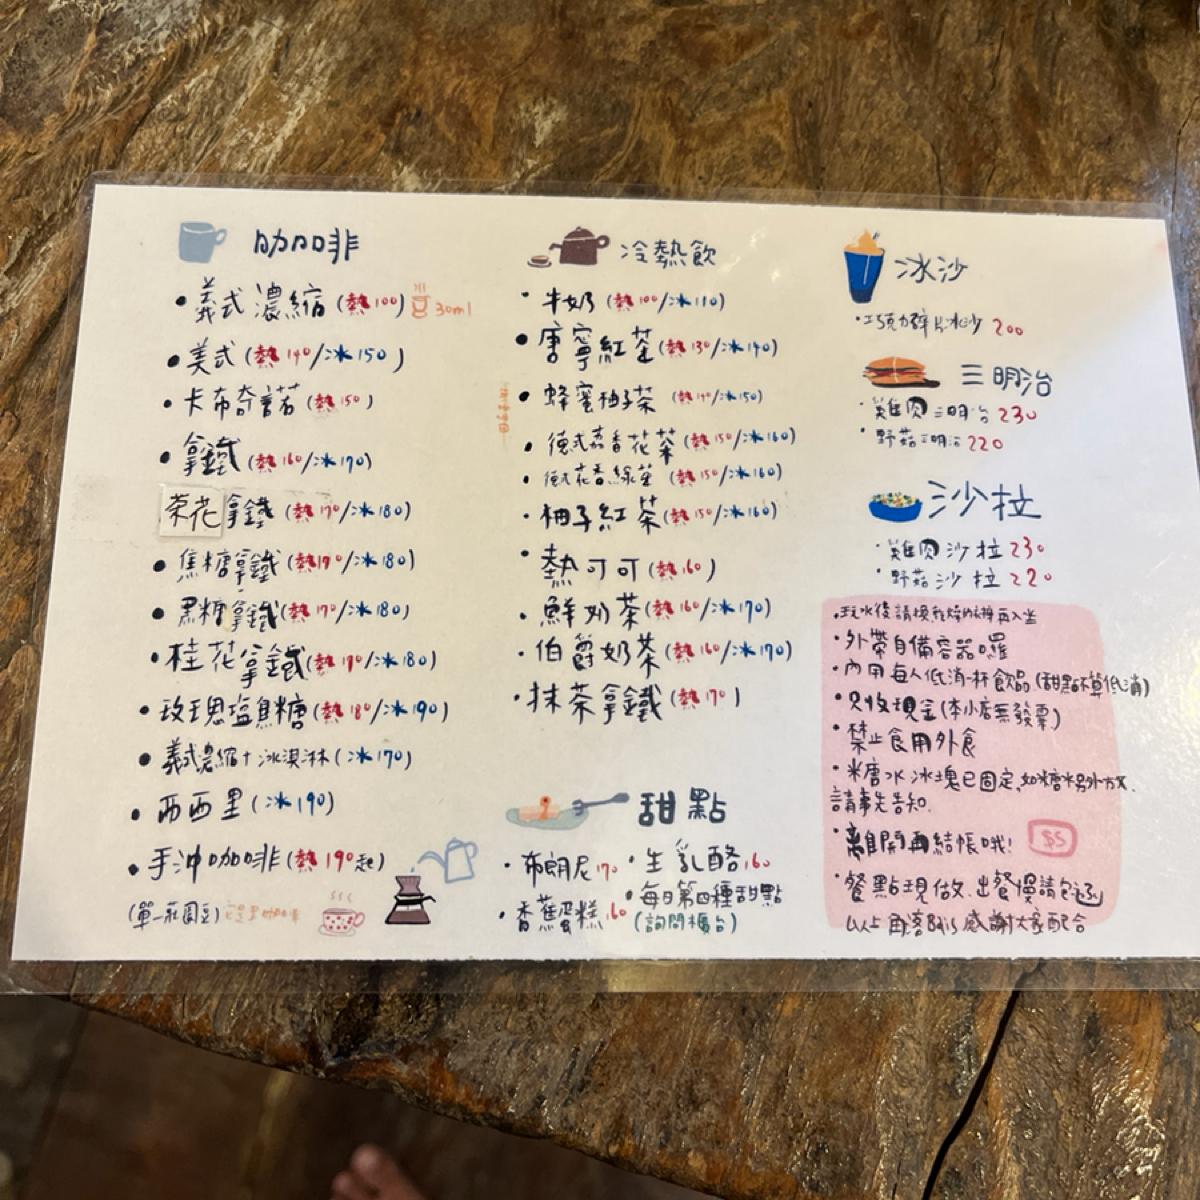 咖啡
義式濃縮(熱100) 30ml
美式(熱140/冰150)
卡布奇諾(熱150)
拿鐵(熱160/冰170)
茉花拿鐵(熱170/冰180)
焦糖拿鐵(熱170/冰180)
黑糖拿鐵(熱170/冰180)
桂花拿鐵(熱170/冰180)
玫瑰塩焦糖(熱180/冰190)
義式濃縮+冰淇淋(冰170)
西西里(冰190)
手沖咖啡(熱190起)
(單一莊園豆)
冷熱飲
牛奶(熱100/冰110)
唐寧紅茶(熱130/冰140)
蜂蜜柚子茶(熱140/冰150)
德式 香花茶(熱150/冰160)
德式花香綠茶(熱150/冰160)
柚子紅茶(熱150/冰160)
熱可可(熱160)
鮮奶茶(熱160/冰170)
伯爵奶茶(熱160/冰170)
抹茶拿鐵(熱170)
甜點
布朗尼170
生乳酪160
香蕉蛋糕160
每日第四種甜點
(詢問櫃台)
冰沙
巧克力碎片冰沙 200
三明治
雞肉三明治230
野菇三明治220
沙拉
雞肉沙拉230
野菇沙拉220
玩水後請換乾燥的褲再入坐
外帶自備容器囉
內用每人低消一杯飲品(甜點不算低消)
只收現金(本小店無發票)
禁止食用外食
糖水冰塊已固定,如糖水另外方式
請事先告知.
離開再結帳哦! $$
餐點現做.出餐慢請包涵
以上 角落 感謝大家配合